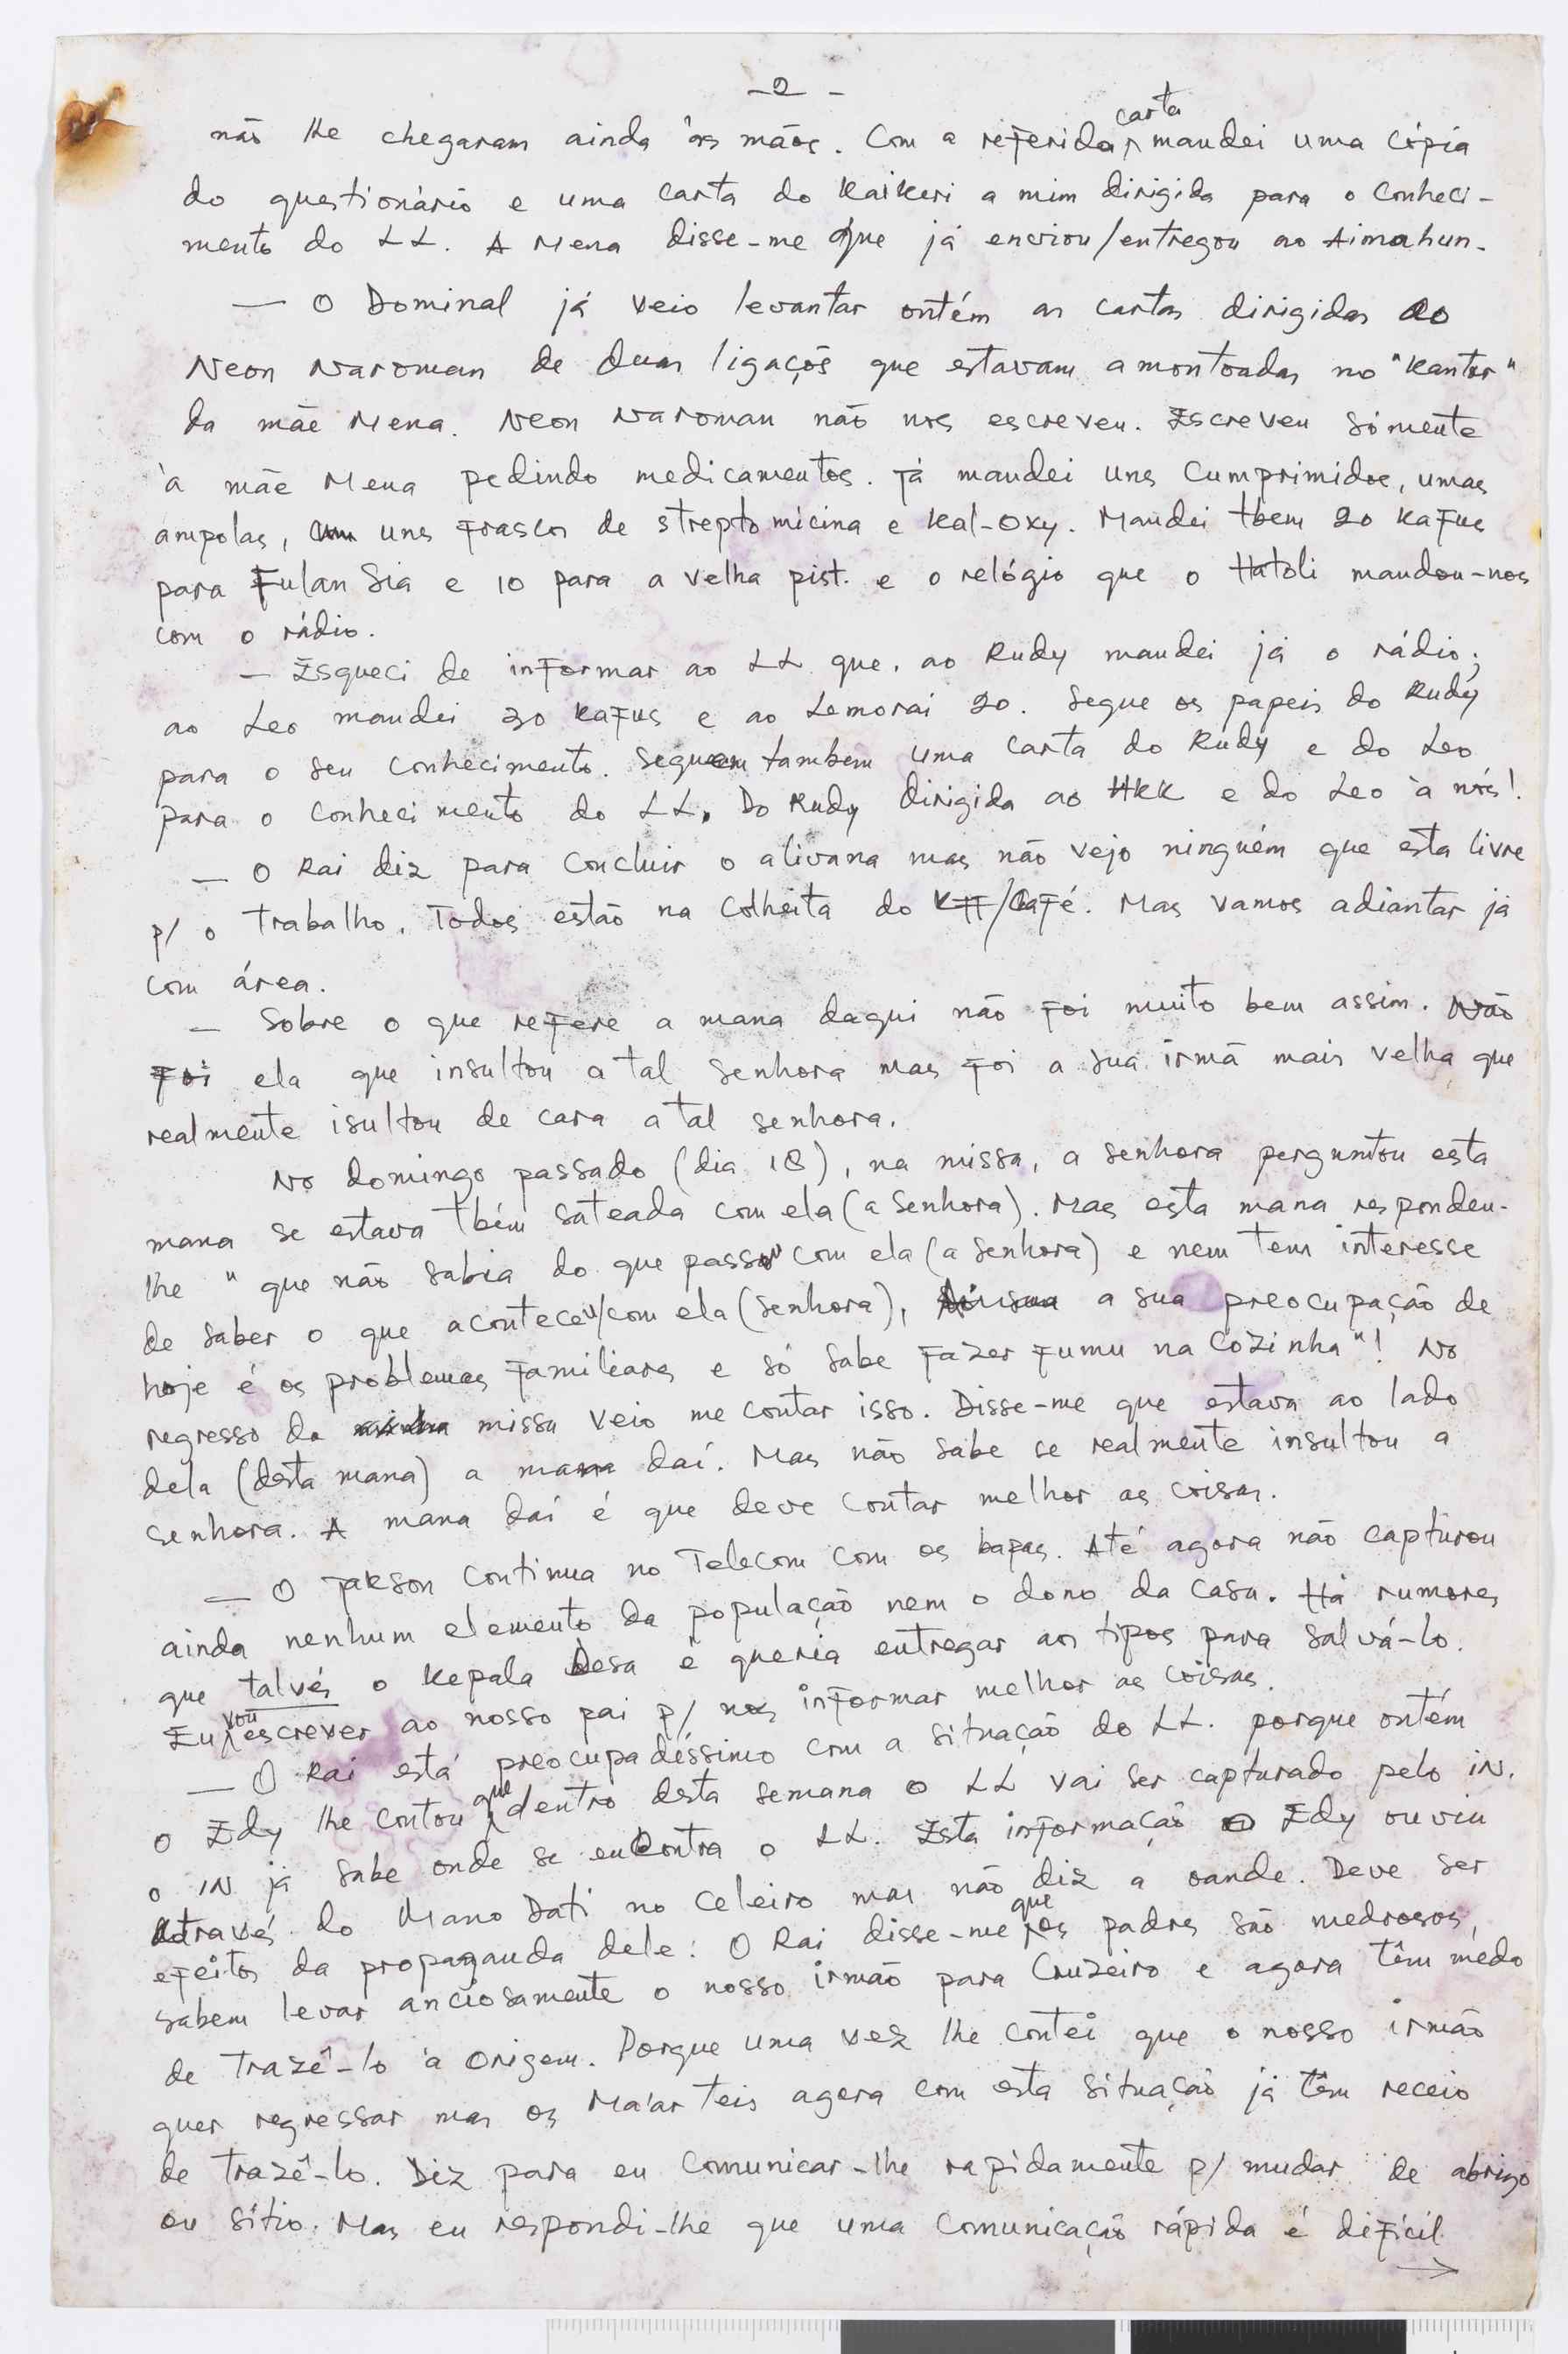 - 2 -
não lhe chegaram ainda às mãos. Com a referida carta mandei uma cópia
do questionário e uma carta do Kaikeri a mim dirigida para o conheci-
mento do LL. A Mena disse-me que já enviou/entregou ao Aimahun.
— O Dominal já veio levantar ontém as cartas dirigidas ao
Neon Naroman de duas ligações que estavam amontoadas no "Kantor"
da mãe Mena. Neon Naroman não nos escreveu. Escreveu sómente
à mãe Mena pedindo medicamentos. Já mandei uns cumprimidos, umas
ampolas, uns frascos de streptomicina e Kal-Oxy. Mandei tbem 20 Kafus
para Fulan Sia e 10 para a velha pist. e o relógio que o Hatoli mandou-nos
com o rádio.
— Esqueci de informar ao LL que, ao Rudy mandei já o rádio;
ao Leo mandei 30 Kafus e ao Lemorai 20. Segue os papeis do Rudy
para o seu conhecimento. Seguem tambem uma carta do Rudy e do Leo
para o conhecimento do LL. Do Rudy dirigida ao HKK e do Leo à nós!
— O Rai diz para concluir o alivana mas não vejo ninguém que esta livre
p/ o trabalho. Todos estão na colheita do Kff/Café. Mas vamos adiantar já
com área.
— Sobre o que refere a mana daqui não foi muito bem assim. Não
foi ela que insultou a tal senhora mas foi a sua irmã mais velha que
realmente isultou de cara a tal senhora.
No domingo passado (dia 18), na missa, a senhora perguntou esta
mana se estava tbém sateada com ela (a senhora). Mas esta mana respondeu-
lhe "que não sabia do que passou com ela (a senhora) e nem tem interesse
de saber o que aconteceu/com ela (senhora), a sua preocupação de
hoje é os problemas familiares e só sabe fazer fumu na cozinha"! No
regresso da missa veio me contar isso. Disse-me que estava ao lado
dela (desta mana) a mana daí. Mas não sabe se realmente insultou a
senhora. A mana daí é que deve contar melhor as coisas.
— O Jakson continua no Telecom com os bapas. Até agora não capturou
ainda nenhum elemento da população nem o dono da casa. Há rumores
que talvés o Kepala Desa é queria entregar aos tipos para salvá-lo.
Eu vou escrever ao nosso pai p/ nos informar melhor as coisas.
— O Rai está preocupadéssimo com a situação do LL. porque ontém
o Edy lhe contou que dentro desta semana o LL vai ser capturado pelo IN.
o IN já sabe onde se encontra o LL. Esta informação o Edy ouviu
através do Mano Dati no Celeiro mas não diz a oande. Deve ser
efeitos da propaganda dele. O Rai disse-me que os padres são medrosos,
sabem levar anciosamente o nosso irmão para Cruzeiro e agora têm mêdo
de trazê-lo à origem. Porque uma vez lhe contei que o nosso irmão
quer regressar mas os Ma'ar teis agora com esta situação já têm receio
de trazê-lo. Diz para eu comunicar-lhe rapidamente p/ mudar de abrigo
ou sítio. Mas eu respondi-lhe que uma comunicação rápida é difícil
→